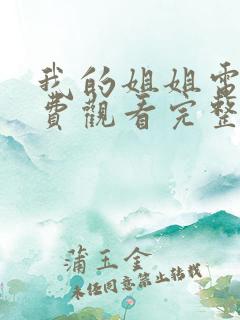 我的姐姐電
費觀看完整
蒲玉金
未经同意禁止转载